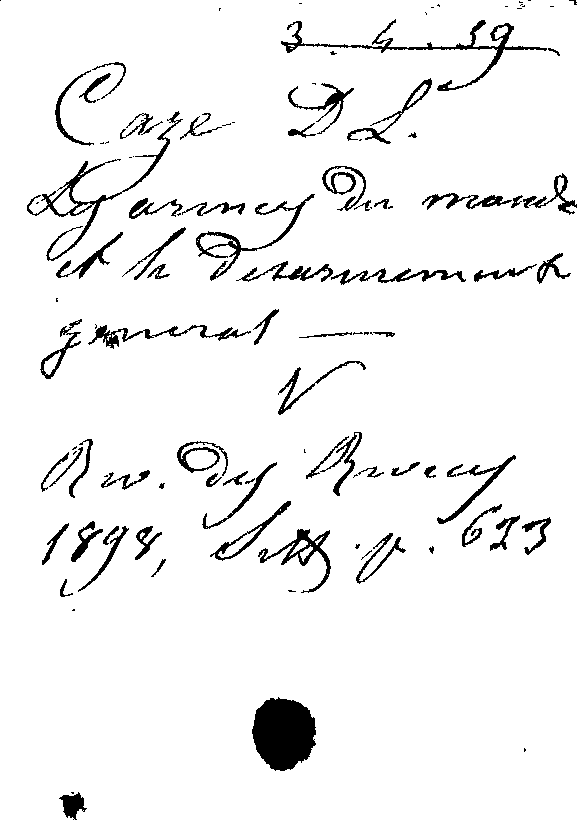 3.4.59
Caze D L.
Les armees du monde
et le desarmement
general —
V
Rev. des Revues
1898, Sept. p. 633